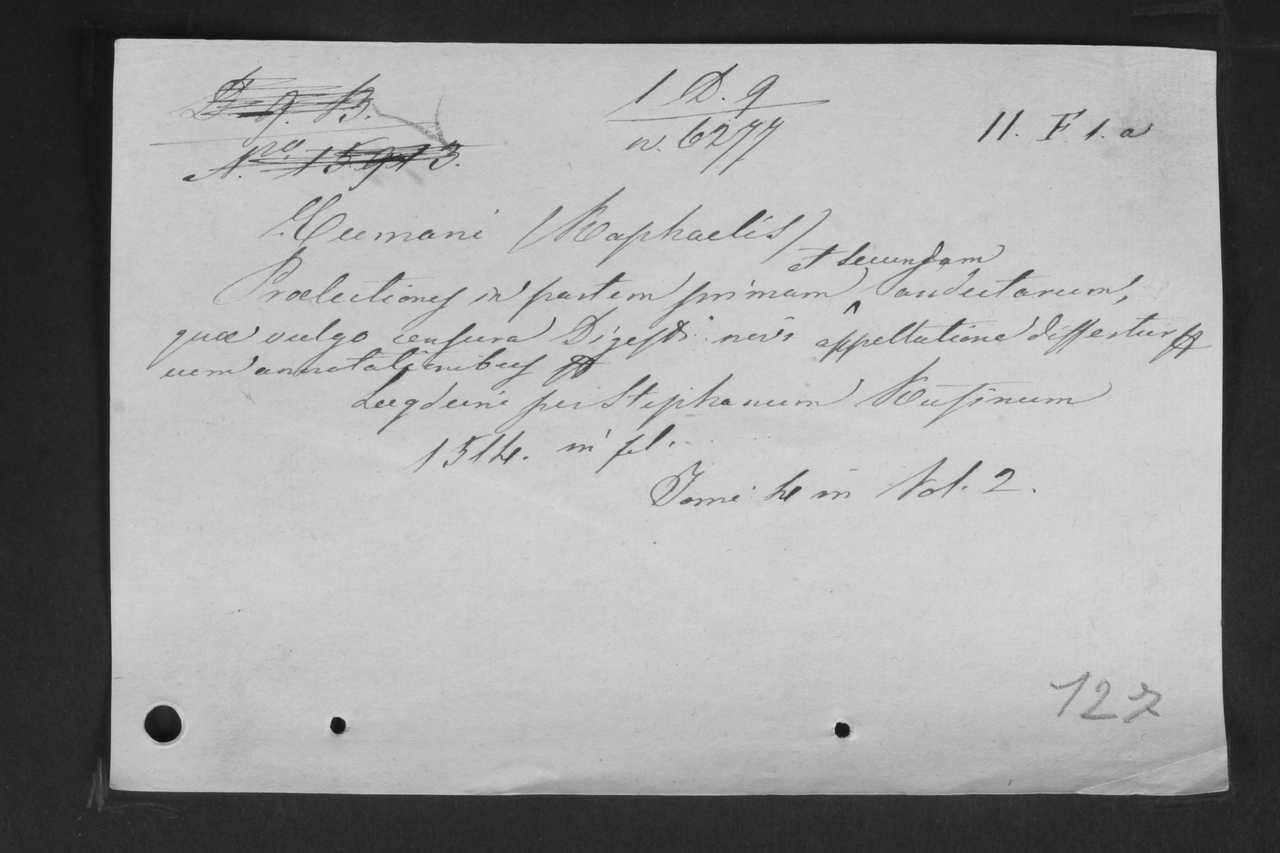 D. g. B.
N.ro 15913.
1 D. g
n. 6277
11. F. 1. a
Cumani (Raphaelis)
et secundam
Prælectiones in partem primam pandectarum,
quæ vulgo censura Digesti novi appellatione differtur
cum annotationibus
Lugduni per Stephanum Rufinum
1514. in fol.
Tomi 4 in Vol. 2.
127